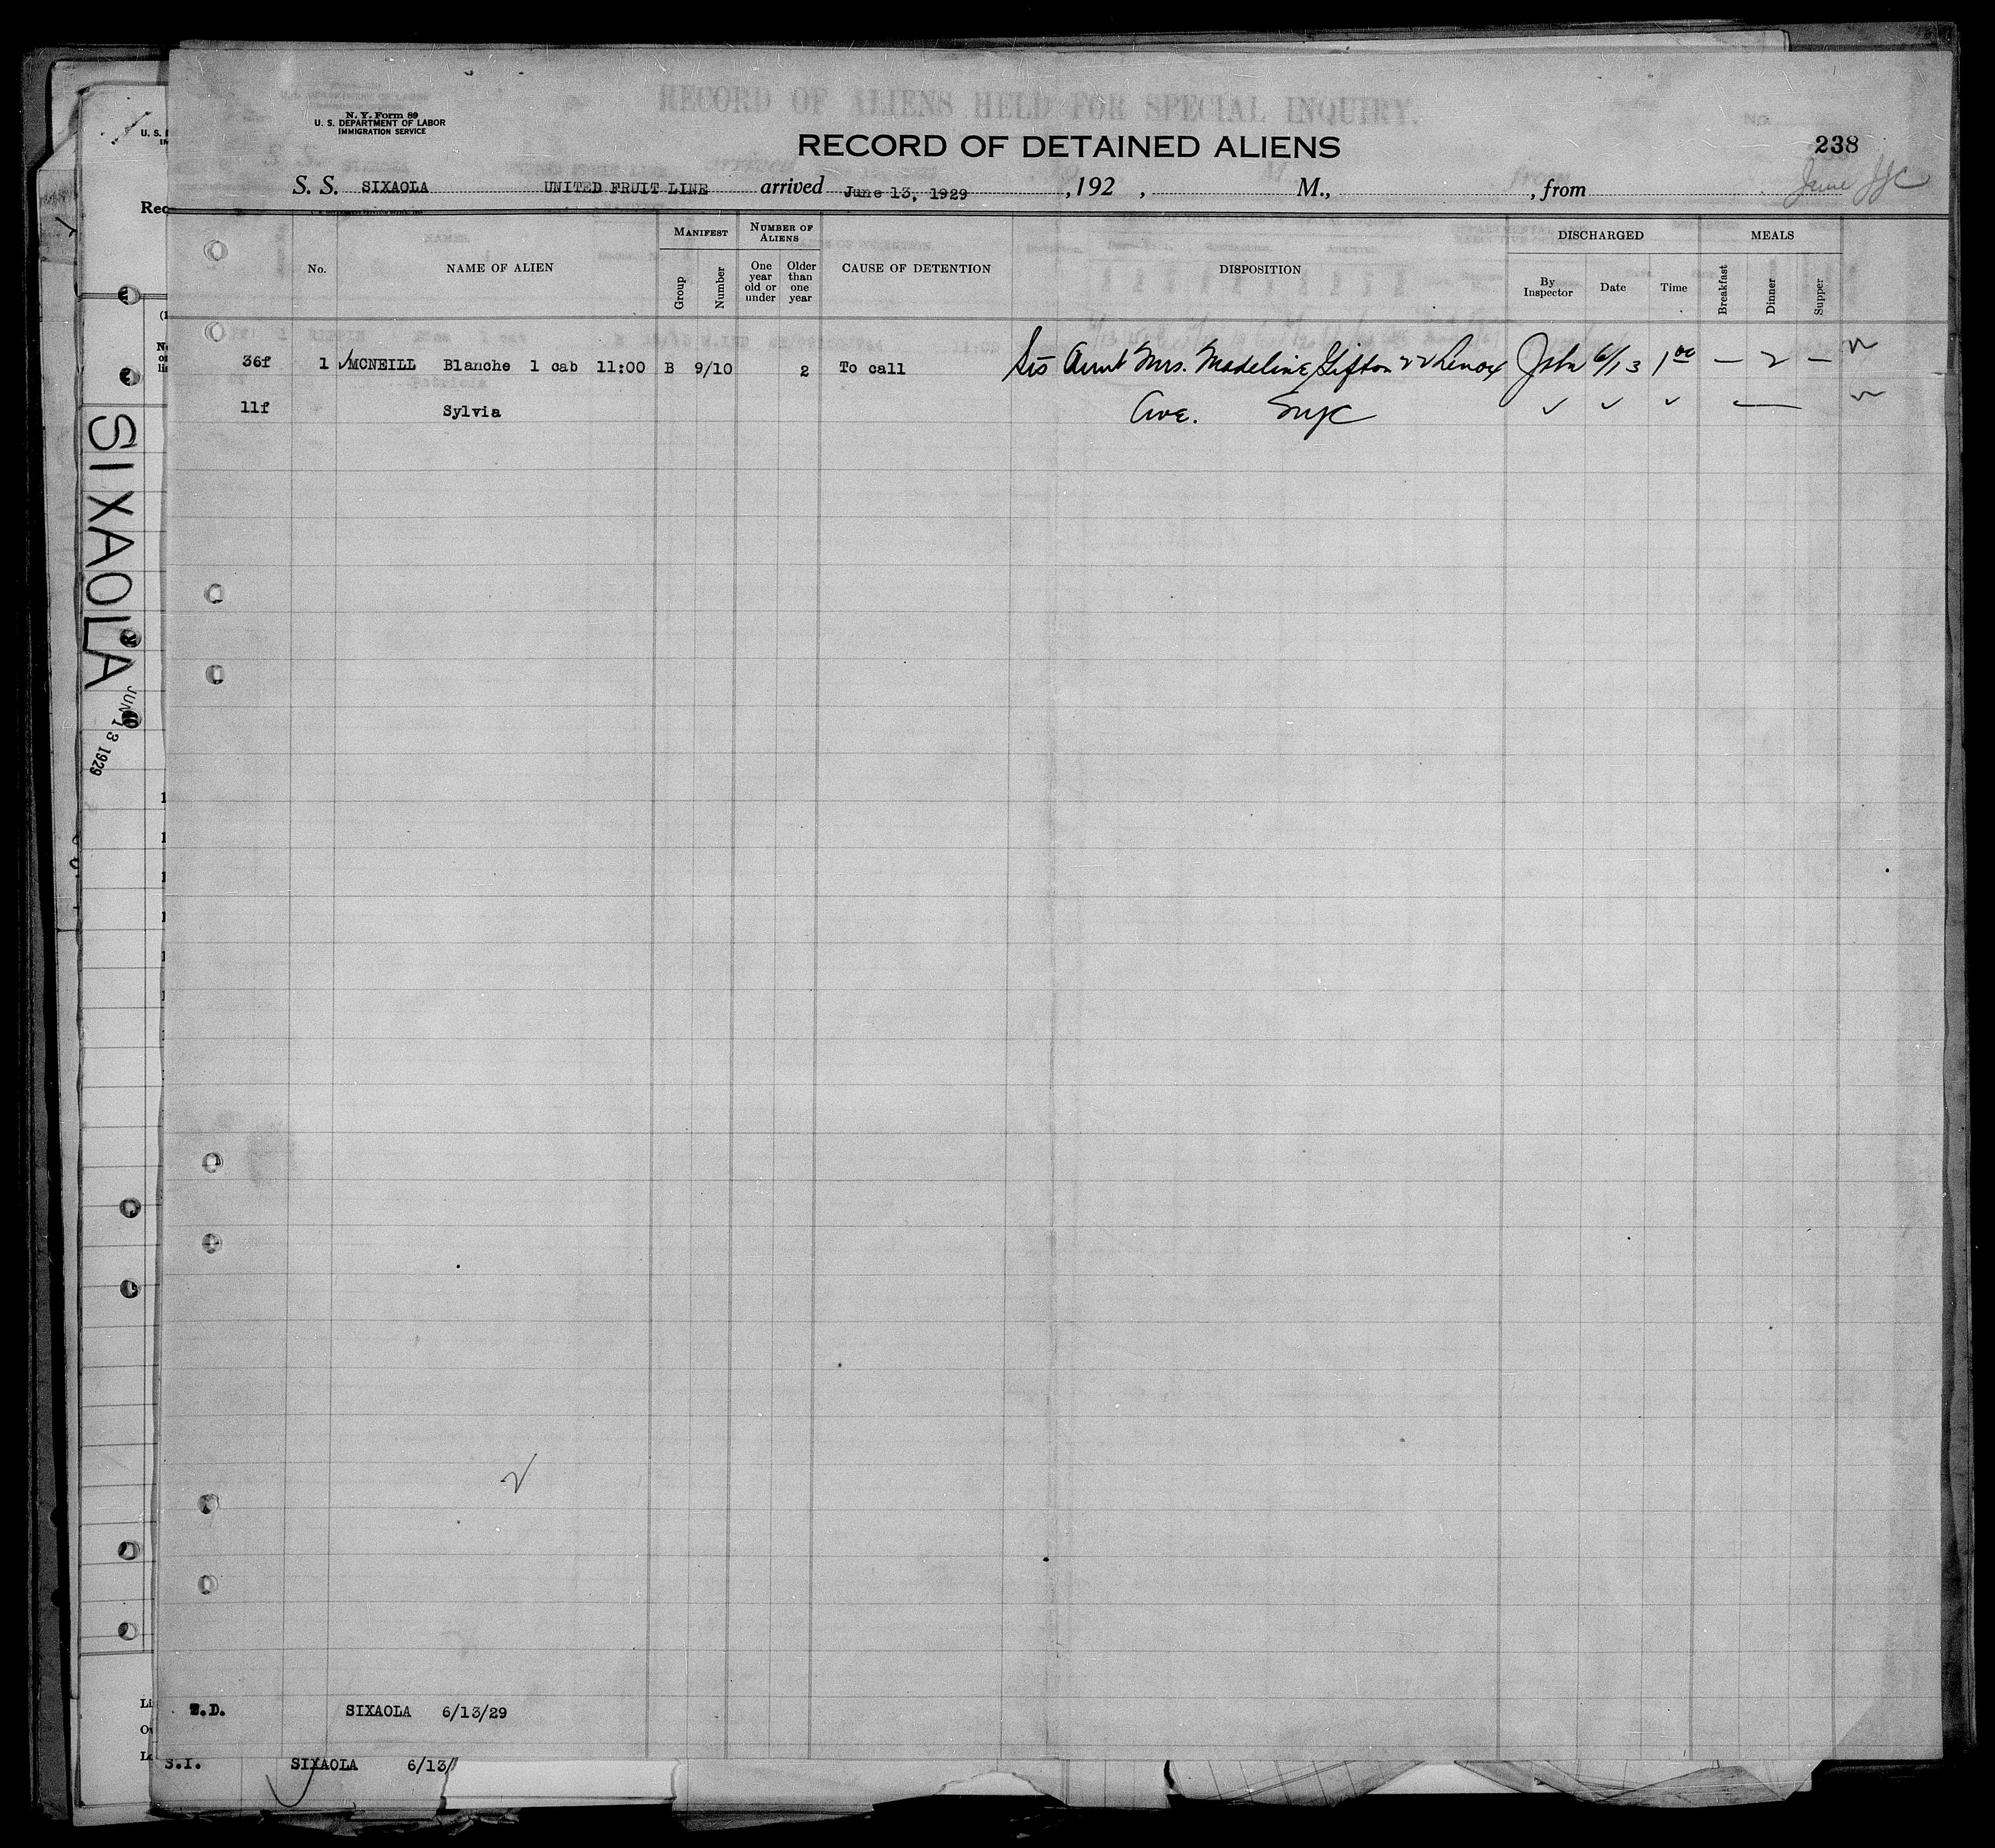 RECORD OF ALIENS HELD FOR SPECIAL INQUIRY.
N. Y. Form 89
U. S. DEPARTMENT OF LABOR
IMMIGRATION SERVICE
RECORD OF DETAINED ALIENS
238
S. S. SIXAOLA UNITED FRUIT LINE arrived June 13, 1929 , 192 , M., , from
MANIFEST NUMBER OF ALIENS DISCHARGED MEALS
No. NAME OF ALIEN Group Number One year old or under Older than one year CAUSE OF DETENTION DISPOSITION By Inspector Date Time Breakfast Dinner Supper
36f 1 MCNEILL Blanche 1 cab 11:00 B 9/10 2 To call Aunt Mrs. Madeline Gifton 22 Lenox John 6/13 1 00 — 2 —
11f Sylvia Ave. NYC ✓ ✓ ✓ —
SIXAOLA
JUN 13 1929
T.D. SIXAOLA 6/13/29
S.I. SIXAOLA 6/13/